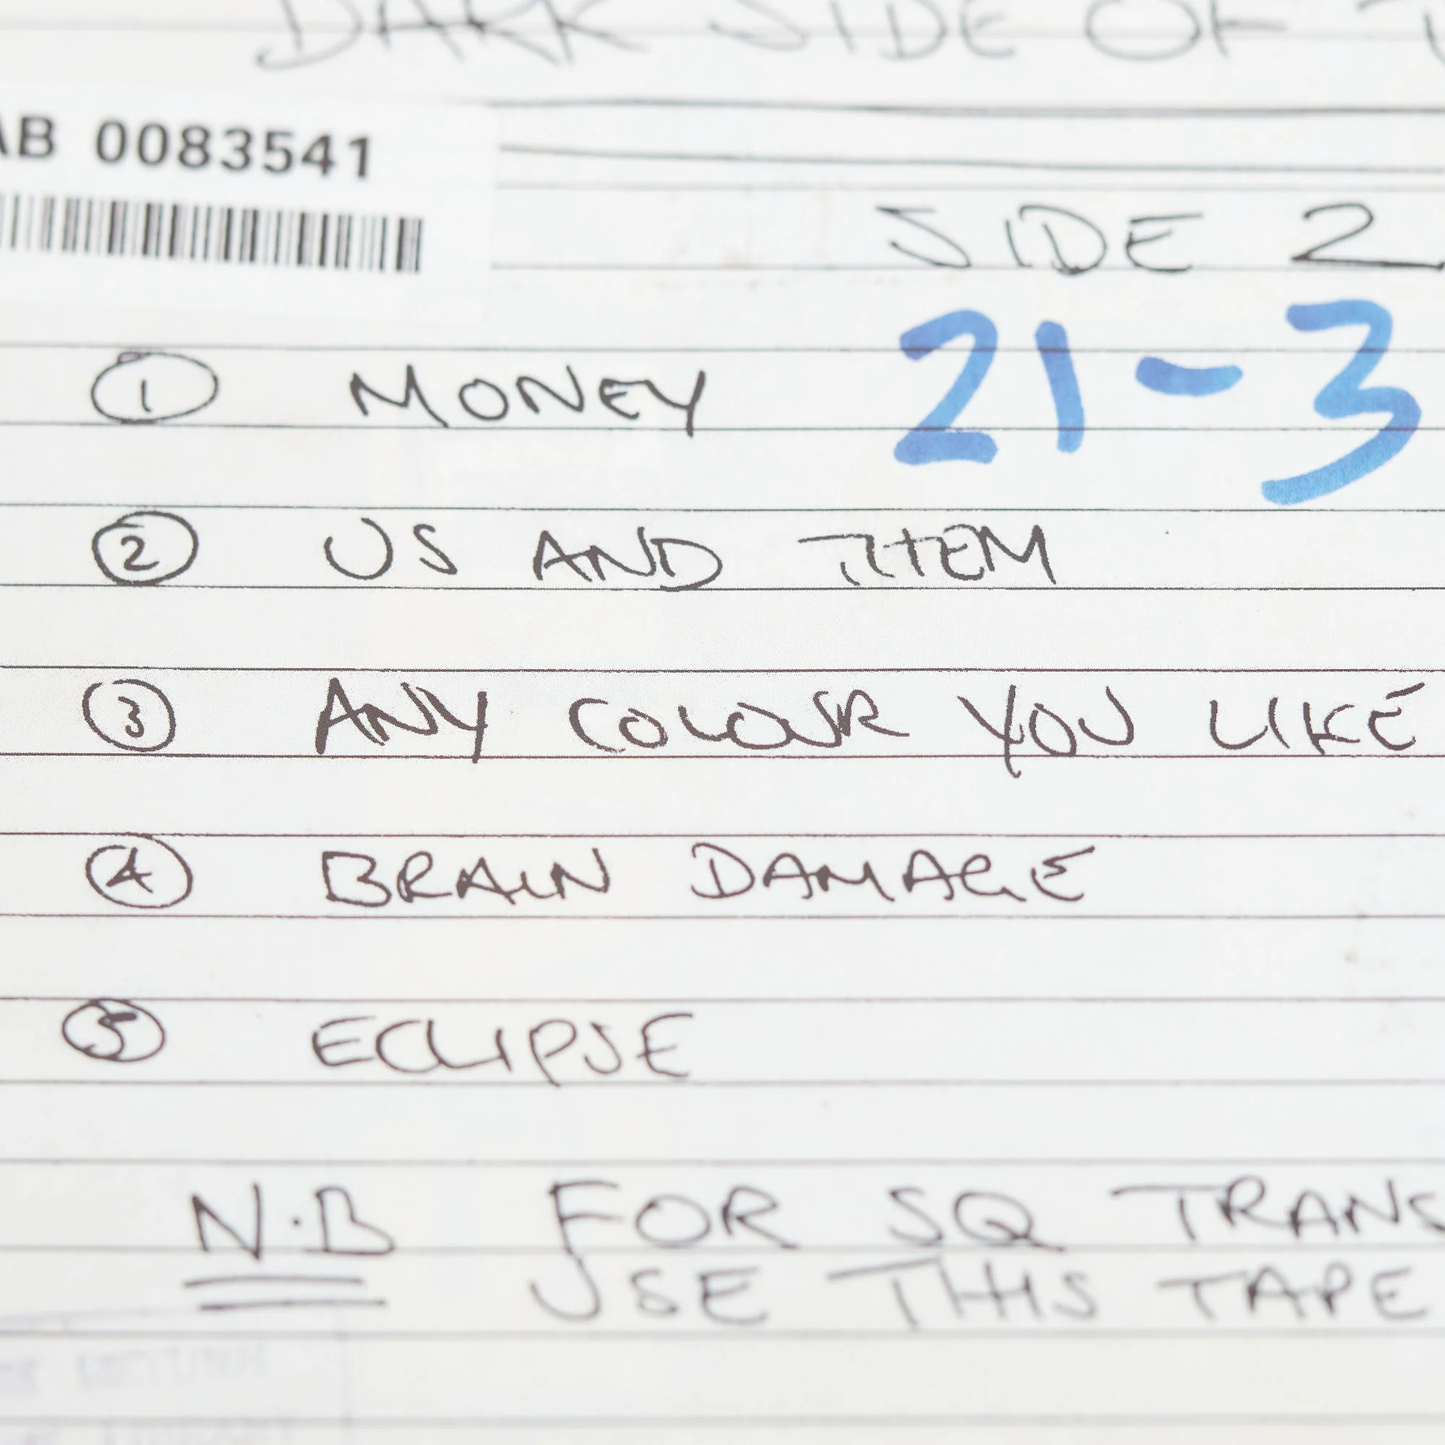 DARK SIDE OF
AB 0083541
SIDE 2
21-3
① MONEY
② US AND THEM
③ ANY COLOUR YOU LIKE
④ BRAIN DAMAGE
⑤ ECLIPSE
N.B FOR SQ TRANS
USE THIS TAPE